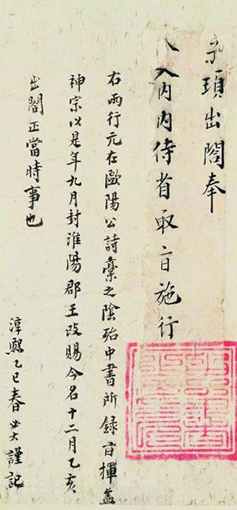 子頊出閣奉
入內內侍省取旨施行
右兩行元在歐陽公詩藁之陰殆中書所錄旨揮蓋
神宗以是年九月封淮陽郡王改賜今名十二月乙亥
出閣正當時事也
淳熙乙巳春必大謹記